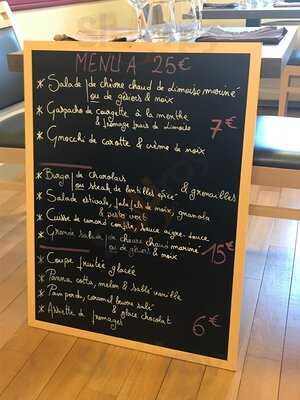 MENU A 25€
* Salade de chèvre chaud de Limouso mariné
ou de gésiers & noix
* Gaspacho de courgette à la menthe
& fromage frais de Limouso
7€
* Gnocchi de carotte & crème de noix
* Burger de charolais
ou steak de lentilles épicé & grenailles
* Salade estivale, falafels de noix, granola
& pesto vert
* Cuisse de canard confite, sauce aigre-douce
* Grande salade de chèvre chaud mariné
ou de gésiers & noix
15€
* Coupe fruitée glacée
* Panna cotta, melon & sablé vanille
* Pain perdu, caramel beurre salé
& glace chocolat
* Assiette de fromages
6€